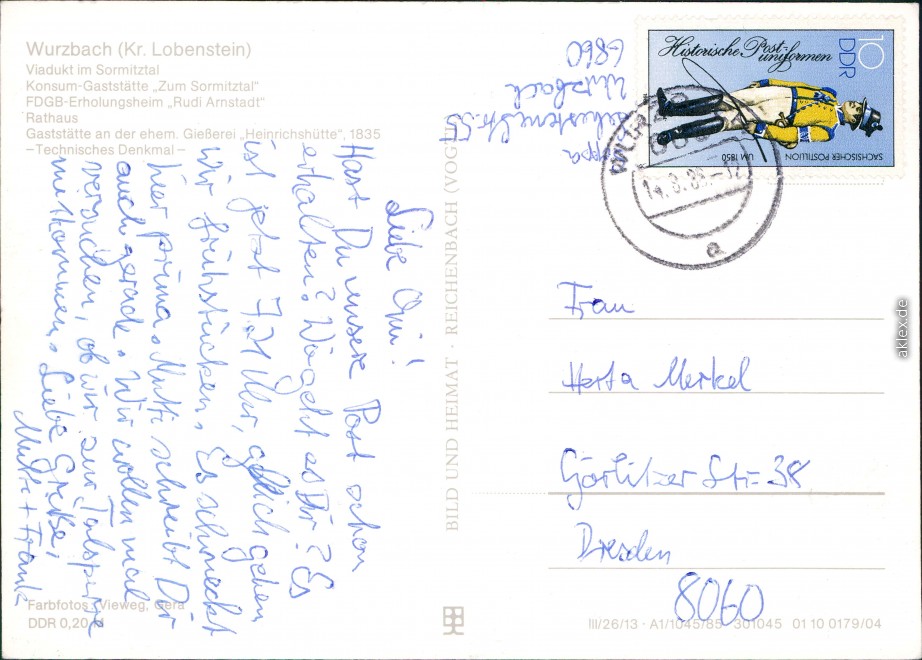 Wurzbach (Kr. Lobenstein)
Viadukt im Sormitztal
Konsum-Gaststätte „Zum Sormitztal"
FDGB-Erholungsheim „Rudi Arnstadt"
Rathaus
Gaststätte an der ehem. Gießerei „Heinrichshütte", 1835
–Technisches Denkmal–
Liebe Omi!
Hast Du unsere Post schon
erhalten? Wie geht es Dir? Es
ist jetzt 7.21 Uhr, gleich gehen
wir frühstücken. Es schmeckt
hier prima. Mutti schreibt Dir
auch gerade. Wir wollen mal
versuchen, ob wir zur Talsperre
mitkommen. Liebe Grüße,
Mutti + Frank
Farbfotos: Vieweg, Gera
DDR 0,20 M
BILD UND HEIMAT · REICHENBACH (VOGTL
Str. 55
Wurzbach
6860
Historische Post-
uniformen
10
DDR
SÄCHSISCHER POSTILLION
UM 1850
a
Frau
Herta Merkel
Görlitzer Str. 38
Dresden
8060
III/26/13 · A1/1045/85 301045 01 10 0179/04
aklex.de